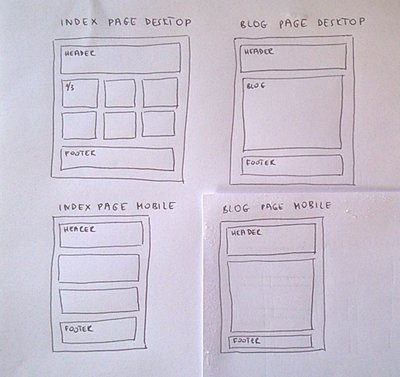 INDEX PAGE DESKTOP
HEADER
1/3
FOOTER
BLOG PAGE DESKTOP
HEADER
BLOG
FOOTER
INDEX PAGE MOBILE
HEADER
FOOTER
BLOG PAGE MOBILE
HEADER
FOOTER